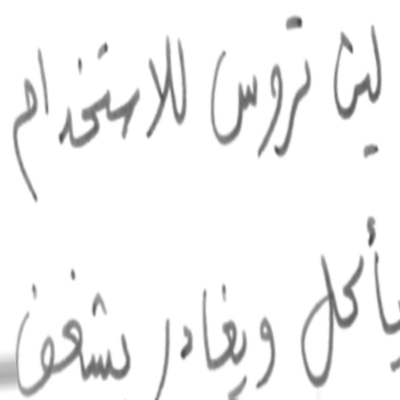 ليث تروس للاستخدام
يأكل ويغادر بشغف